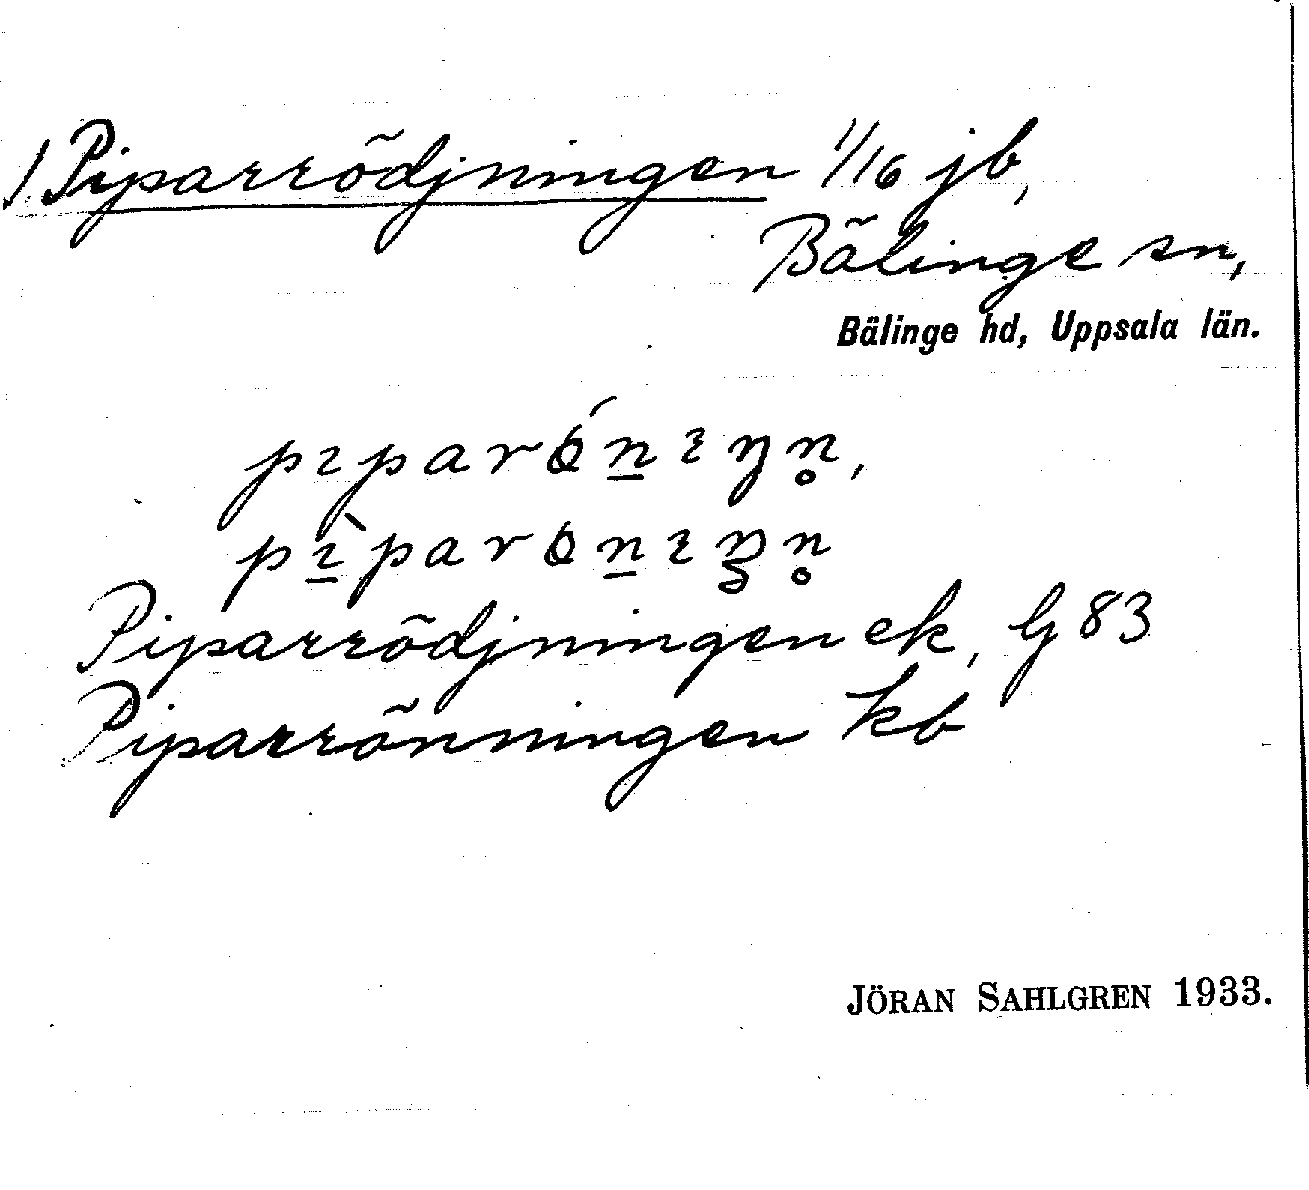 / Piparrödjningen 1/16 jb,
Bälinge sn,
Bälinge hd, Uppsala län.
Piparrödjningen ek, G 83
Piparrönningen kb
JÖRAN SAHLGREN 1933.